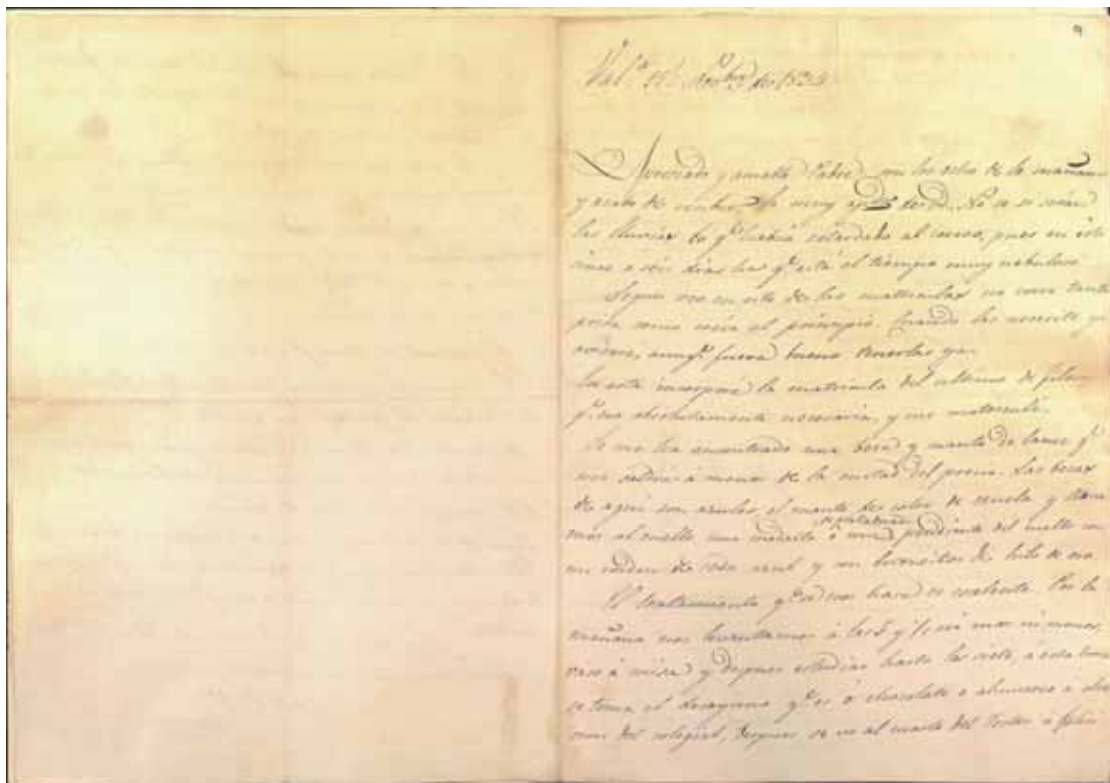 9
Val.ª
de 183
Apreciado y amable Padre: son las ocho de la mañana
y acabo de recibir la muy de V. No se si serán
las lluvias lo q.e habrá retardado al correo, pues en este
cinco o seis dias hace q.e está el tiempo muy nebuloso.
Segun veo en esto de las matriculas no corre tanta
prisa como creia al principio. Cuando las necesite ya
avisaré, aunq.e fuera bueno tenerlas ya.
la matricula del ultimo de filos
q.e era absolutamente necesaria, y me matriculé.
Se me ha encontrado una beca y manto de lance q.e
me saldrá á menos de la mitad del precio. Las becas
de aqui son azules, el manto de color de canela y
mos al cuello una medalla ó pendiente del cuello con
un cordon de seda azul y un de hilo de oro.
El tratamiento q.e se nos hace es excelente. Por la
mañana nos levantamos á las 5 y ½ ni mas ni menos,
vase á misa y despues estudiar hasta las siete, á esta hora
se toma el desayuno q.e es ó chocolate o almuerzo á
del colegial, despues se va al cuarto del Rector á